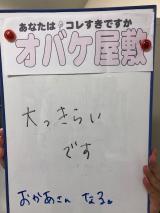 あなたはコレすきですか
オバケ屋敷
大っきらい
です
おかあさん なる。